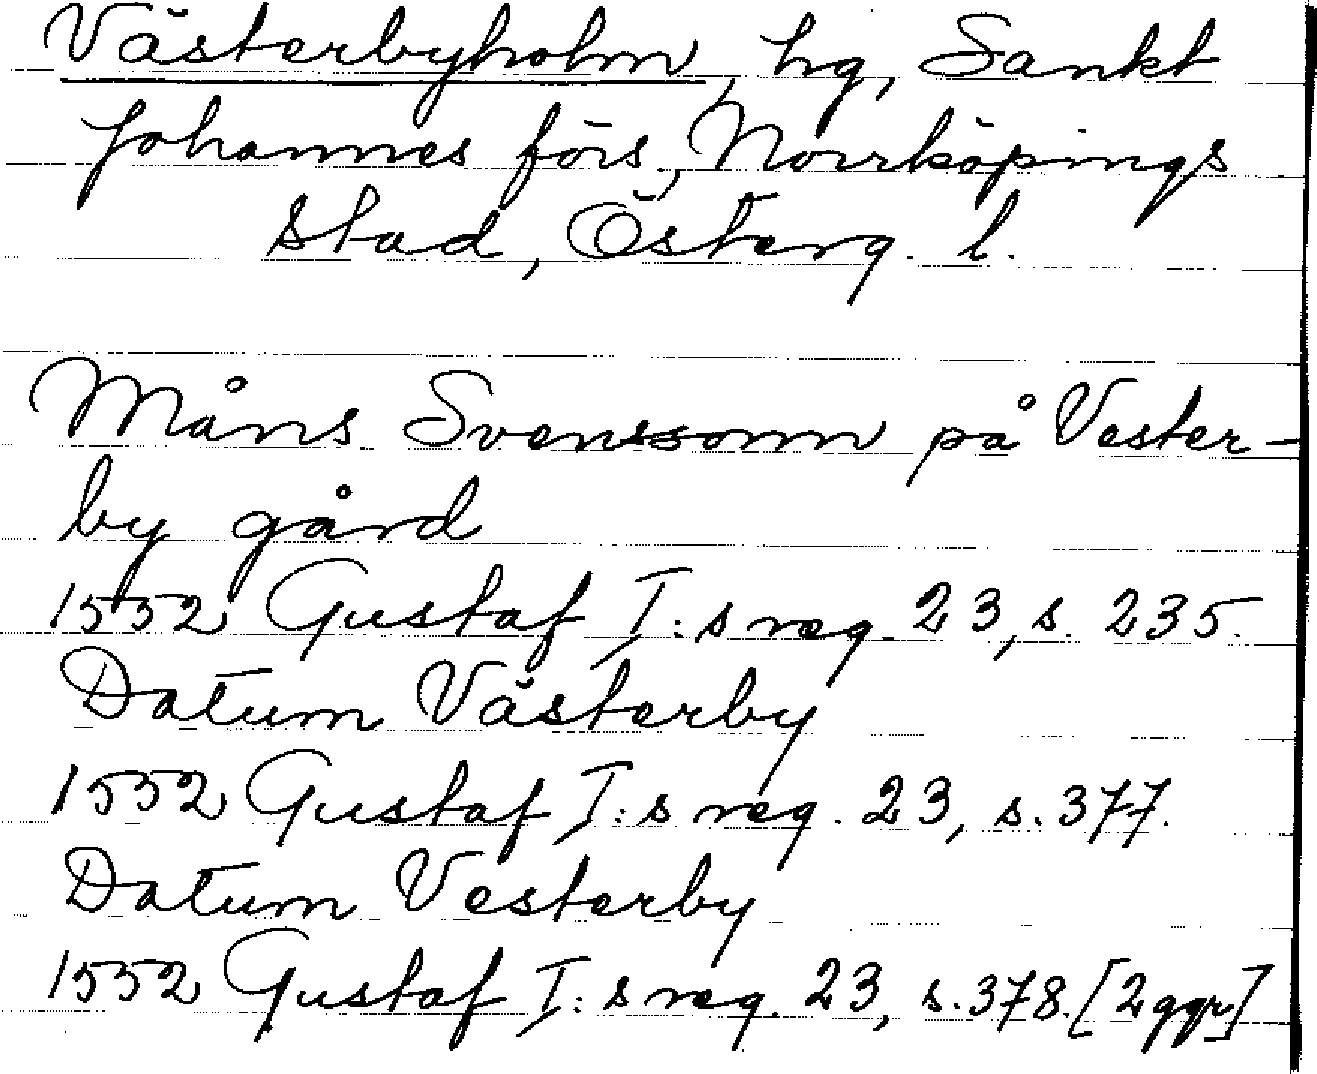 Västerbyholm, hg, Sankt
Johannes förs, Norrköpings
stad, Österg. l.
Måns Svenssonn på Vester-
by gård
1552 Gustaf I:s reg. 23, s. 235.
Datum Västerby
1552 Gustaf I:s reg. 23, s. 377.
Datum Vesterby
1552 Gustaf I:s reg. 23, s. 378. [2 ggr]